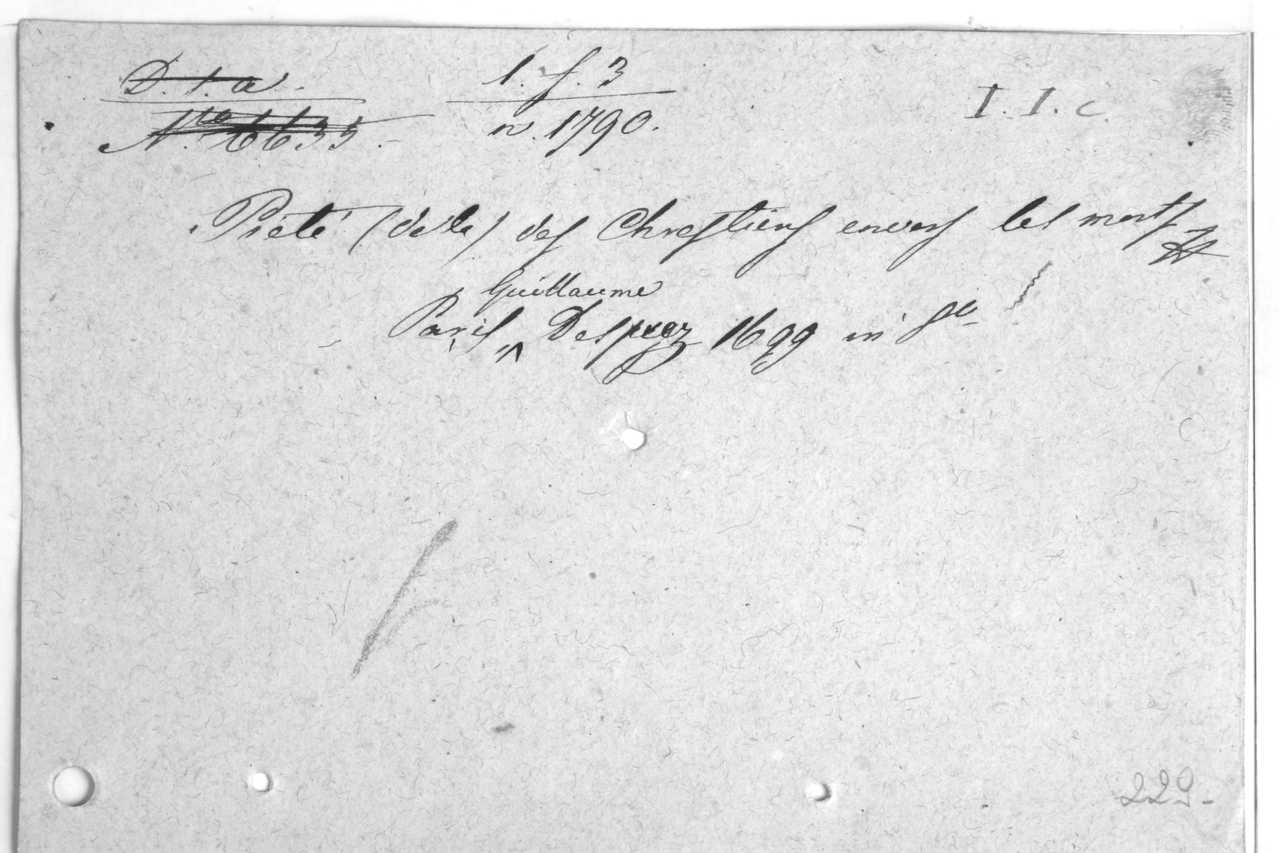 D. 1. a.
l. f. 3
I. I. c.
N.ro 6633.
n. 1790.
Pieté (de la) des Chrestiens envers les morts
Guillaume
Paris Desprez 1699 in 8o
229.